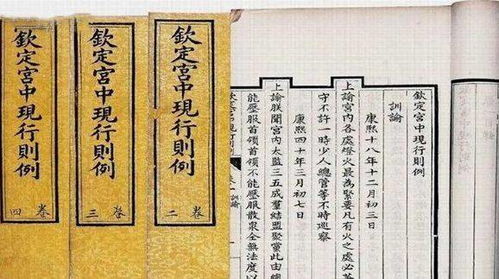 欽定宮中現行則例
訓諭
康熙十八年十二月初三日
上諭宮內各處燈火最為緊要凡有火之處必
守不許一時少人總管等不時巡察
康熙四十年三月初七日
上諭朕聞宮內太監三五成羣結盟聚黨此由
能壓服首領首領不能壓服散衆全無法度以
訓諭
欽定宮中現行則例
卷二
欽定宮中現行則例
卷三
欽定宮中現行則例
卷四